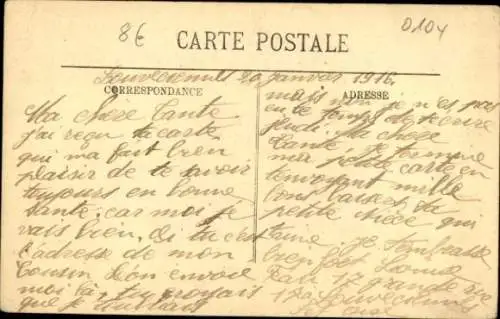 8€
0104
CARTE POSTALE
Louveciennes 20 janvier 1916
CORRESPONDANCE
ADRESSE
Ma chère Tante
j'ai reçu ta carte
qui m'a fait bien
plaisir de te savoir
toujours en bonne
santé, car moi je
vais bien. Si tu
l'adresse de mon
Cousin Léon envoie
moi là, tu croyais
que je
mais non je n'ai pas
eu le temps de t'écrire
jeudi. Ma chère
Tante je termine
ma petite carte en
t'envoyant mille
bons baisers ta
petite nièce qui
t'aime. Je t'embrasse
bien fort Louise
17 grande rue
Louveciennes
S et Oise